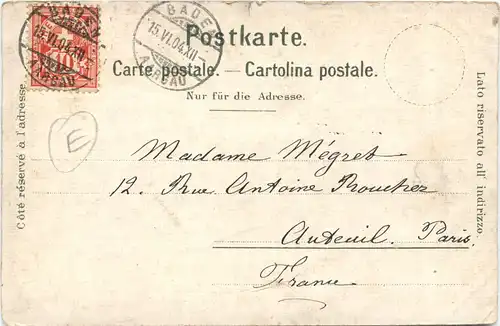 Postkarte.
Carte postale. — Cartolina postale.
Nur für die Adresse.
Côté réservé à l'adresse.
Lato riservato all' indirizzo.
BADEN
15.VI.04.XII-
AARGAU
10
BADEN
15.VI.04.XII-
AARGAU
E
Madame Mégret
12. Rue Antoine Roucher
Auteuil. Paris.
France